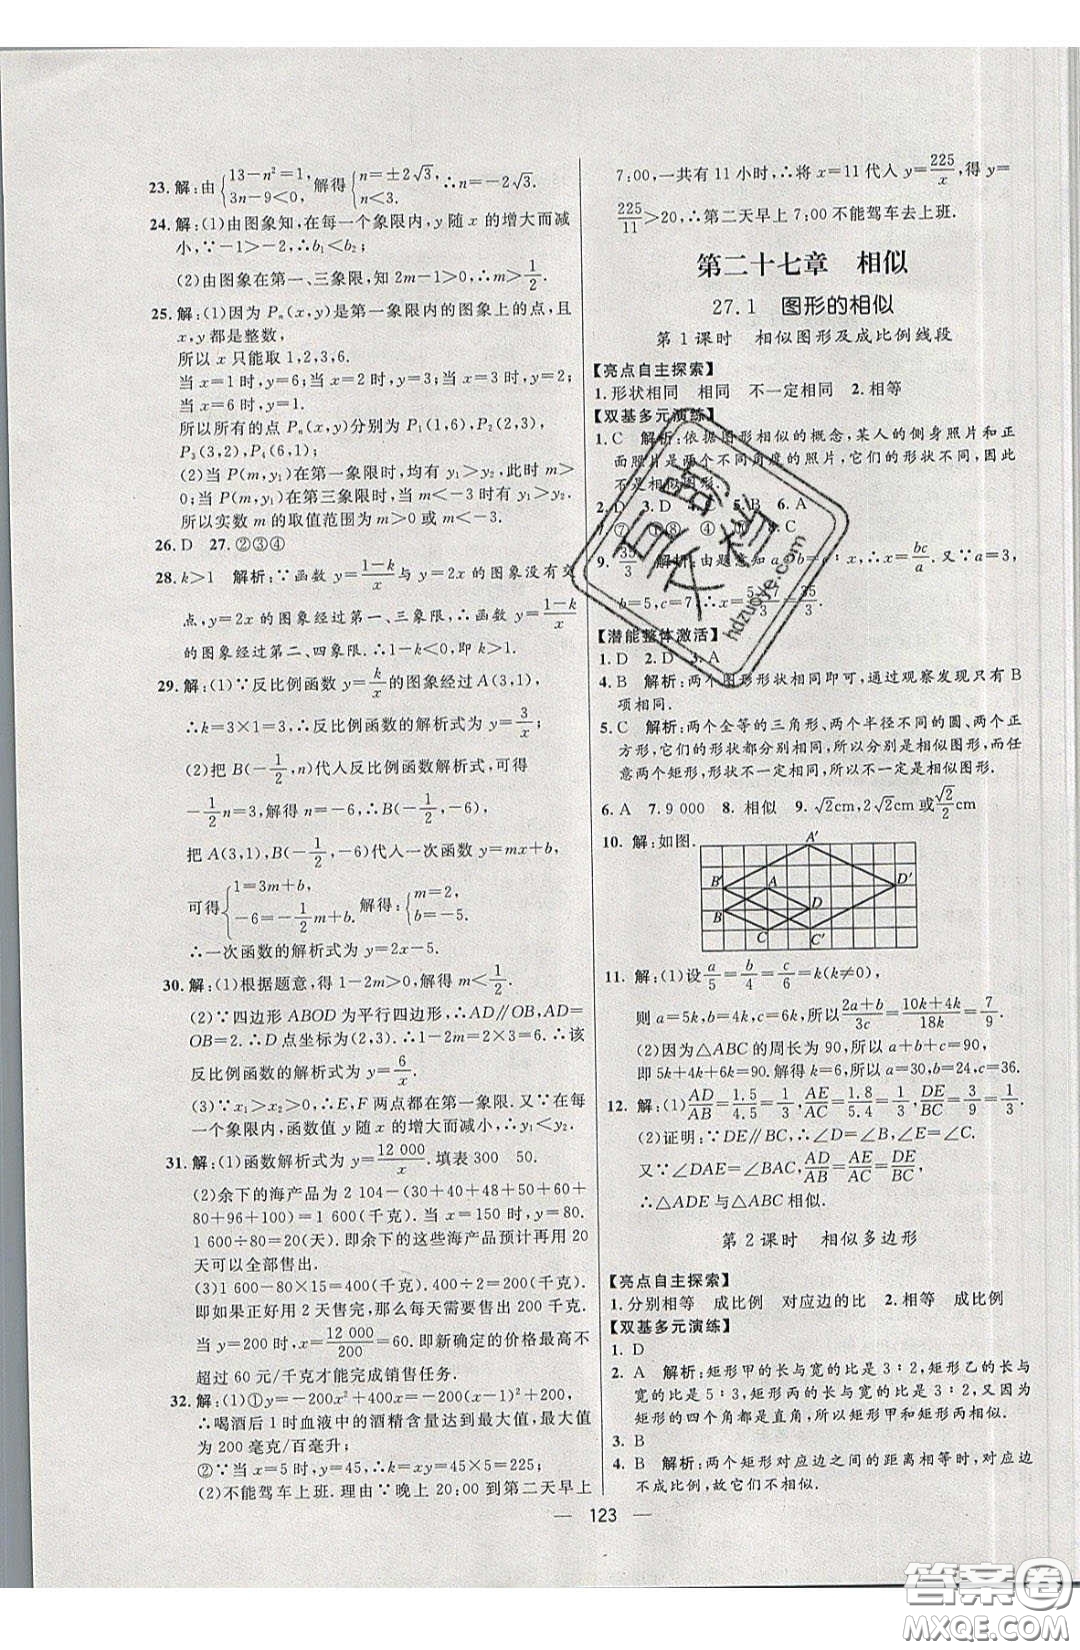 23. 解:由{13-n²=1, 3n-9<0, 解得{n=±2√3, n<3. ∴n=-2√3.
24. 解:(1)由图象知,在每一个象限内,y 随 x 的增大而减
小,∵-1>-2,∴b₁<b₂;
(2)由图象在第一、三象限,知 2m-1>0,∴m>1/2.
25. 解:(1)因为 Pₙ(x,y)是第一象限内的图象上的点,且
x,y 都是整数,
所以 x 只能取 1,2,3,6.
当 x=1 时,y=6;当 x=2 时,y=3;当 x=3 时,y=2;
当 x=6 时,y=1.
所以所有的点 Pₙ(x,y)分别为 P₁(1,6),P₂(2,3),
P₃(3,2),P₄(6,1);
(2)当 P(m,y₁)在第一象限时,均有 y₁>y₂,此时 m>
0;当 P(m,y₁)在第三象限时,当 m<-3 时,有 y₁>y₂.
所以实数 m 的取值范围为 m>0 或 m<-3.
26. D 27. ②③④
28. k>1 解析:∵函数 y=(1-k)/x 与 y=2x 的图象没有交
点,y=2x 的图象经过第一、三象限,∴函数 y=(1-k)/x
的图象经过第二、四象限.∴1-k<0.∴k>1.
29. 解:(1)∵反比例函数 y=k/x 的图象经过 A(3,1),
∴k=3×1=3,∴反比例函数的解析式为 y=3/x;
(2)把 B(-1/2,n)代人反比例函数解析式,可得
-1/2 n=3,解得 n=-6,∴B(-1/2,-6).
把 A(3,1),B(-1/2,-6)代人一次函数 y=mx+b,
可得{1=3m+b, -6=-1/2 m+b. 解得:{m=2, b=-5.
∴一次函数的解析式为 y=2x-5.
30. 解:(1)根据题意,得 1-2m>0,解得 m<1/2.
(2)∵四边形 ABOD 为平行四边形,∴AD∥OB,AD=
OB=2.∴D 点坐标为(2,3).∴1-2m=2×3=6.∴该
反比例函数的解析式为 y=6/x.
(3)∵x₁>x₂>0,∴E,F 两点都在第一象限.又∵在每
一个象限内,函数值 y 随 x 的增大而减小,∴y₁<y₂.
31. 解:(1)函数解析式为 y=12 000/x.填表300 50.
(2)余下的海产品为 2 104-(30+40+48+50+60+
80+96+100)=1 600(千克).当 x=150 时,y=80.
1 600÷80=20(天).即余下的这些海产品预计再用 20
天可以全部售出.
(3)1 600-80×15=400(千克),400÷2=200(千克).
即如果正好用 2 天售完,那么每天需要售出 200 千克.
当 y=200 时,x=12 000/200=60.即新确定的价格最高不
超过 60 元/千克才能完成销售任务.
32. 解:(1)①y=-200x²+400x=-200(x-1)²+200,
∴喝酒后 1 时血液中的酒精含量达到最大值,最大值
为 200 毫克/百毫升;
②∵当 x=5 时,y=45,∴k=xy=45×5=225;
(2)不能驾车上班.理由:∵晚上 20:00 到第二天早上
7:00,一共有 11 小时,∴将 x=11 代人 y=225/x,得 y=
225/11>20,∴第二天早上 7:00 不能驾车去上班.
第二十七章 相似
27.1 图形的相似
第 1 课时 相似图形及成比例线段
【亮点自主探索】
1. 形状相同 相同 不一定相同 2. 相等
【双基多元演练】
1. C 解析:依据图形相似的概念,某人的侧身照片和正
面照片是两个不同角度的照片,它们的形状不同,因此
不是相似图形.
2. D 3. D 4. D 5. B 6. A
7. ⑦ ①⑧ ④ 8. C
9. 35/3 解析:由题意知 a:b=c:x,∴x=bc/a.又∵a=3,
b=5,c=7,∴x=5×7/3=35/3.
【潜能整体激活】
1. D 2. D 3. A
4. B 解析:两个图形形状相同即可,通过观察发现只有 B
项相同.
5. C 解析:两个全等的三角形、两个半径不同的圆、两个正
方形,它们的形状都分别相同,所以分别是相似图形,而任
意两个矩形,形状不一定相同,所以不是相似图形.
6. A 7. 9 000 8. 相似 9. √2cm,2√2cm或√2/2cm
10. 解:如图.
A′
B′ A D′
B D
C C′
11. 解:(1)设a/5=b/4=c/6=k(k≠0),
则 a=5k,b=4k,c=6k,所以(2a+b)/3c=(10k+4k)/18k=7/9.
(2)因为△ABC 的周长为 90,所以 a+b+c=90,
即 5k+4k+6k=90.解得 k=6,所以 a=30,b=24,c=36.
12. 解:(1)AD/AB=1.5/4.5=1/3,AE/AC=1.8/5.4=1/3,DE/BC=3/9=1/3.
(2)证明:∵DE∥BC,∴∠D=∠B,∠E=∠C.
又∵∠DAE=∠BAC,AD/AB=AE/AC=DE/BC,
∴△ADE 与△ABC 相似.
第 2 课时 相似多边形
【亮点自主探索】
1. 分别相等 成比例 对应边的比 2. 相等 成比例
【双基多元演练】
1. D
2. A 解析:矩形甲的长与宽的比是 3∶2,矩形乙的长与
宽的比是 5∶3,矩形丙的长与宽的比是 3∶2,又因为
矩形的四个角都是直角,所以矩形甲和矩形丙相似.
3. B
4. B 解析:两个矩形对应边之间的距离相等,对应边
不成比例,故它们不相似.
— 123 —
hdzuoye.com
答案圈
MXQE.COM